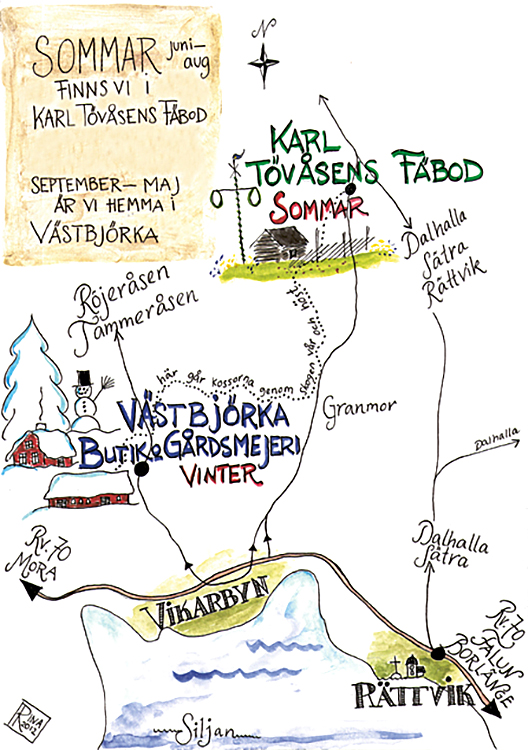 SOMMAR juni-
aug
FINNS VI I
KARL TÖVÅSENS FÄBOD
SEPTEMBER – MAJ
ÄR VI HEMMA I
VÄSTBJÖRKA
N
KARL
TÖVÅSENS FÄBOD
SOMMAR
Dalhalla
Sätra
Rättvik
Röjeråsen
Tammeråsen
här går kossorna genom skogen vår och höst
VÄSTBJÖRKA
BUTIK & GÅRDSMEJERI
VINTER
Granmor
Dalhalla
Dalhalla
Sätra
Rv. 70
MORA
VIKARBYN
Rv. 70
FALUN
BORLÄNGE
RÄTTVIK
Siljan
RINA
2012